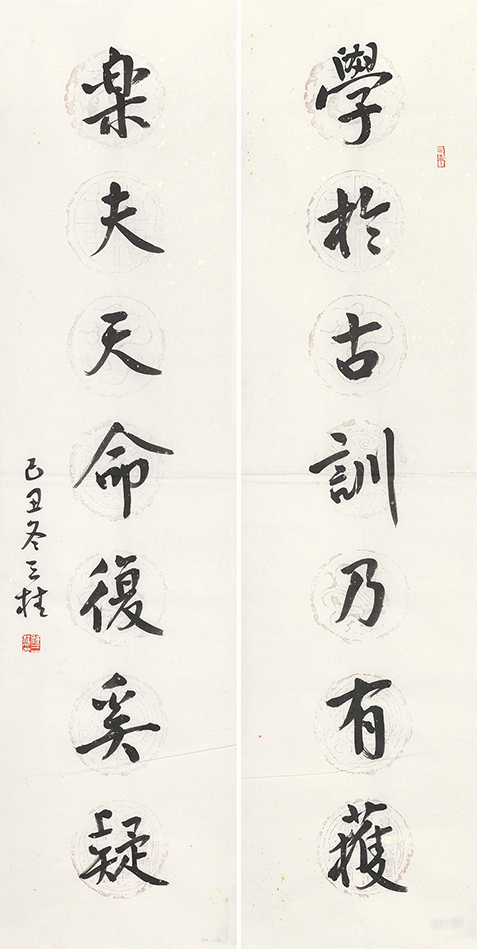 學於古訓乃有獲
楽夫天命復奚疑
己丑冬三桂